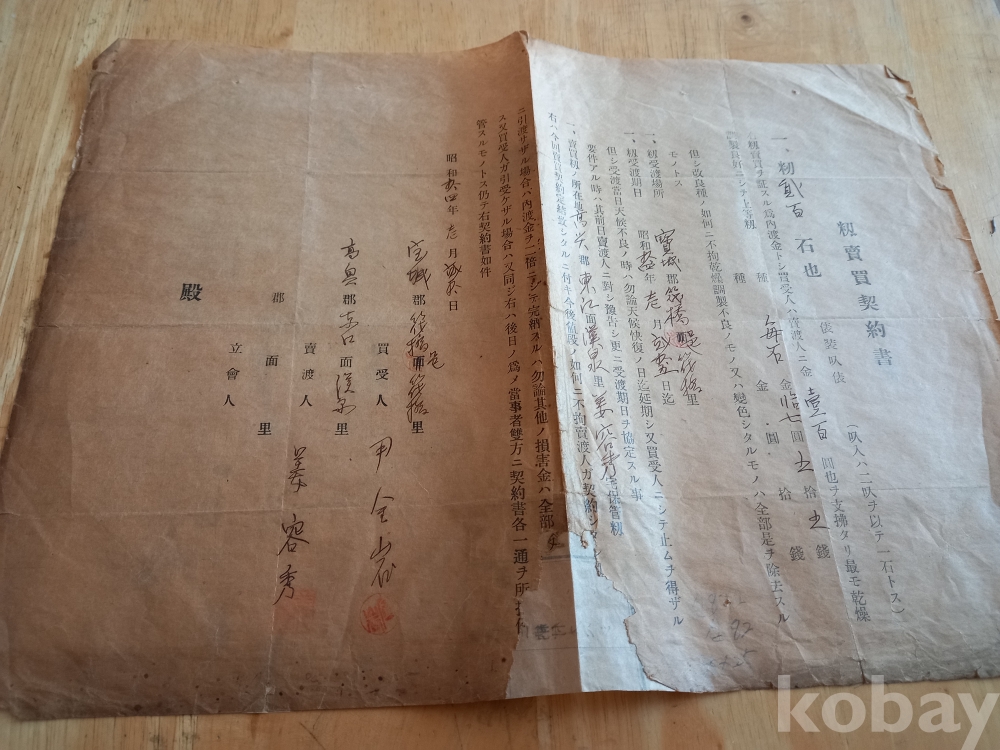 籾賣買契約書
一、籾貳百石也 俵装叺俵 (叺入ハ二叺ヲ以テ一石トス)
籾賣買ヲ証スル爲内渡金トシ買受人ハ賣渡人ニ金壹百圓也ヲ支拂タリ最モ乾燥
調製良好ニシテ上等籾
種 每石 金 七圓五拾五錢
種 金 圓 拾 錢
但シ改良種ノ如何ニ不拘乾燥調製不良ノモノ又ハ變色シタルモノハ全部是ヲ除去スル
モノトス
一、籾受渡場所 寶城郡筏橋 筏橋里
一、籾受渡期日 昭和 年 壱月 日迄
但シ受渡當日天候不良ノ時ハ勿論天候快復ノ日迄延期シ又買受人ニシテ止ムヲ得ザル
要件アル時ハ其前日賣渡人ニ對シ豫告シ更ニ受渡期日ヲ協定スル事
一、賣買籾ノ所在地高興郡東江面漢泉里姜容秀宅保管籾
右ハ今回賣買契約定結致シタルニ付キ今後値段ノ如何ニ不拘賣渡人ガ契約
ニ引渡サザル場合ハ内渡金ヲ二倍ニシテ完納スルハ勿論其他ノ損害金ハ全部
ス又買受人ガ引受ケザル場合ハ又同ジ右ハ後日ノ爲メ當事者雙方ニ契約書各一通ヲ所持保
管スルモノトス仍テ右契約書如件
昭和 年 壱月 日
宝城郡筏橋邑筏橋里
買受人 申
高興郡東江面漢泉里
賣渡人 姜容秀
郡 面 里
立會人
殿
kobay